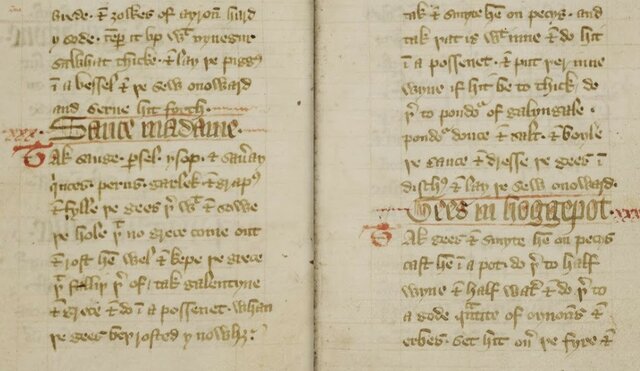 brede. & ȝolkes of ayron hard
y sode. teṕ it vp wt vyneger
sūwhat thicke. & lay þe piggꝭ
ī a vessel & þe sew onoward
and serue hit forth.
.xxx. Sawce madame.
Tak sauge. ꝑsel. ysop. & sau̓ay
qͥnces. perus. garlek & grapꝭ
& fylle þe gees þ̓ wt & sowe
þe hole þt no grece come out
& rost hem wel. & kepe þe grece
þt fallit þ̓ of. tak galentyne
& grece & do ī a possenet. whan
þe gees ber rosted ynowhȝ.
tak & smyte hē on pecys. and
tak þat is wt inne & do hit
ī a possenet. & put þer inne
wyne if hit be to thick. do
þ̓ to pondoʳ of galyngale.
pondoʳ douce & salt. & boyle
þe sauce & dresse þe gees ī
dischꝭ & lay þe sew onoward.
Gees in hoggepot. .xxxi
Tak gees & smyte hē on pecys
cast hē ī a pot. do þ̓ to half
wyne & half wat̓. & do þ̓ to
a gode qͣntite of oynouns &
erbes. set hit on̓ þe fyre &